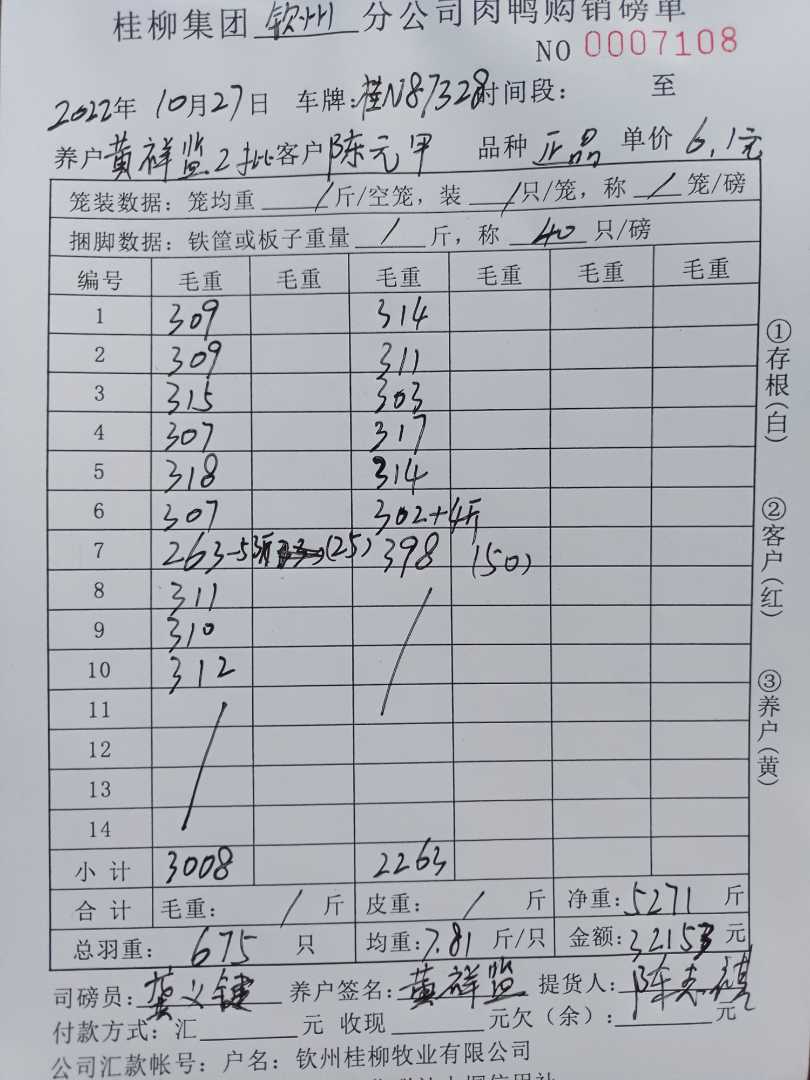 桂柳集团 钦州 分公司肉鸭购销磅单
NO 0007108
2022年 10月27日 车牌:桂N87328 时间段: 至
养户 黄祥监2批 客户 陈元甲 品种 正品 单价 6.1元
笼装数据: 笼均重 / 斤/空笼, 装 / 只/笼, 称 / 笼/磅
捆脚数据: 铁筐或板子重量 / 斤, 称 40 只/磅
编号 毛重 毛重 毛重 毛重 毛重 毛重
1 309 314
2 309 311
3 315 303
4 307 317
5 318 314
6 307 302+4斤
7 263-53斤 (25) 398 (50)
8 311
9 310
10 312
11
12
13
14
小计 3008 2263
合计 毛重: / 斤 皮重: / 斤 净重: 5271 斤
总羽重: 675 只 均重: 7.81 斤/只 金额: 32153 元
司磅员: 龚义键 养户签名: 黄祥监 提货人: 陈
付款方式: 汇 元 收现 元欠(余): 元
公司汇款帐号: 户名: 钦州桂柳牧业有限公司
①存根(白)
②客户(红)
③养户(黄)